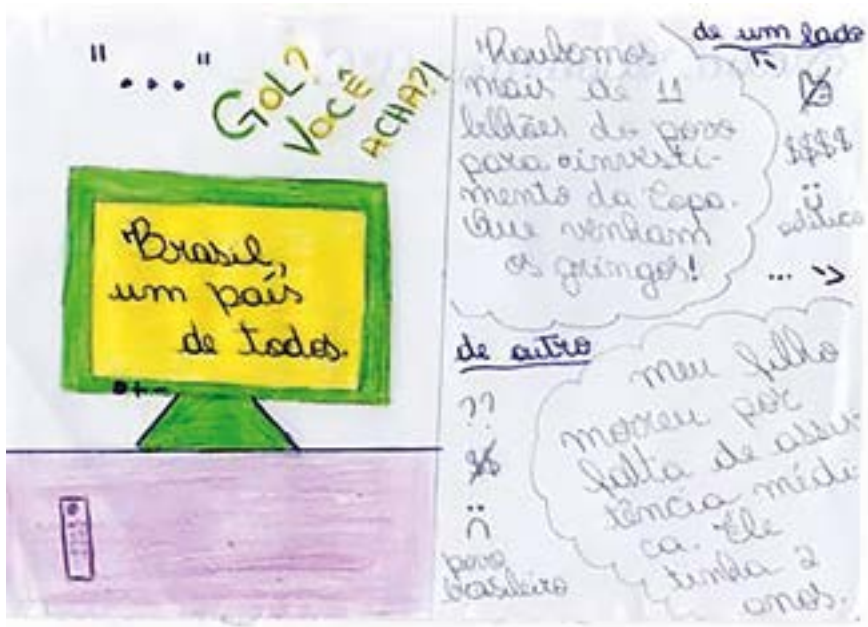 "..."
GOL?
VOCÊ
ACHA?!
Brasil,
um país
de todos.
de um lado
"Roubamos
mais de 11
bilhões do povo
para o investi-
mento da Copa.
Que venham
os gringos!
$$$$
...
de outro
??
$
povo
brasileiro
meu filho
morreu por
falta de assis
tência médi
ca. Ele
tinha 2
anos.